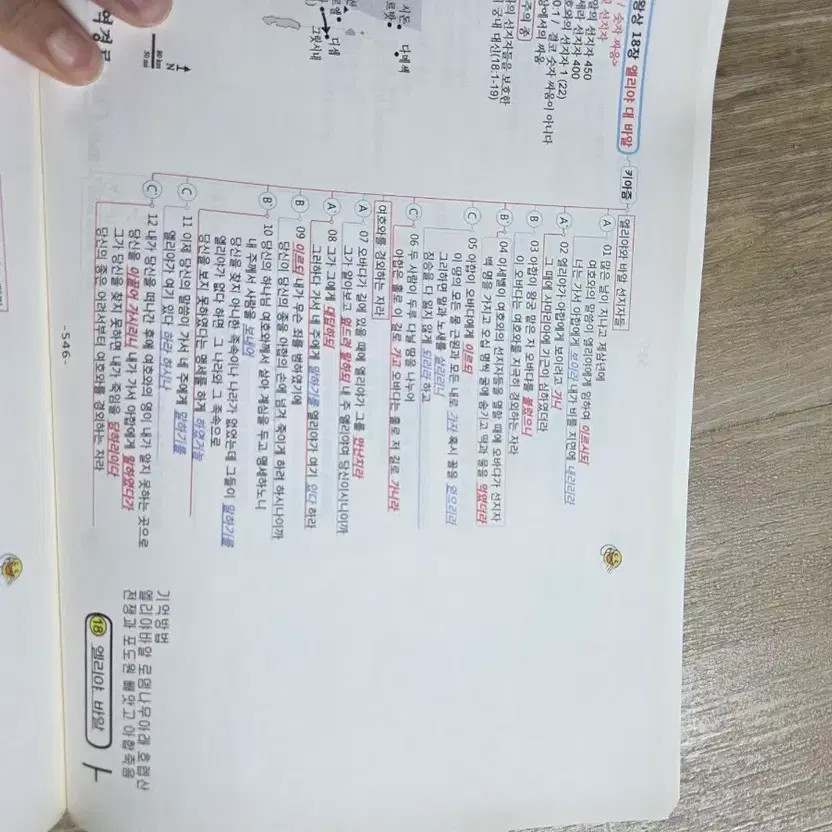 왕상 18장 엘리야 대 바알
숫자 싸움>
선지자
알의 선지자 450
세라 선지자 400
호와의 선지자 1 (22)
0:1 / 결코 숫자 싸움이 아니다
앞에서의 싸움
주의 종
와의 선지자들을 보호한
국내 대신(18:1-19)
시돈
르밧
다메섹
디셉
그릿시내
N
80 km
50 mi
키아즘
엘리야와 바알 선지자들
A 01 많은 날이 지나고 제삼년에
여호와의 말씀이 엘리야에게 임하여 이르시되
너는 가서 아합에게 보이라 내가 비를 지면에 내리리라
A` 02 엘리야가 아합에게 보이려고 가니
그 때에 사마리아에 기근이 심하였더라
B 03 아합이 왕궁 맡은 자 오바댜를 불렀으니
이 오바댜는 여호와를 지극히 경외하는 자라
B` 04 이세벨이 여호와의 선지자들을 멸할 때에 오바댜가 선지자
백 명을 가지고 오십 명씩 굴에 숨기고 떡과 물을 먹였더라
C 05 아합이 오바댜에게 이르되
이 땅의 모든 물 근원과 모든 내로 가자 혹시 꼴을 얻으리라
그리하면 말과 노새를 살리리니
짐승을 다 잃지 않게 되리라 하고
C` 06 두 사람이 두루 다닐 땅을 나누어
아합은 홀로 이 길로 가고 오바댜는 홀로 저 길로 가니라
여호와를 경외하는 자라
A 07 오바댜가 길에 있을 때에 엘리야가 그를 만난지라
그가 알아보고 엎드려 말하되 내 주 엘리야여 당신이시니이까
A` 08 그가 그에게 대답하되
그러하다 가서 네 주에게 말하기를 엘리야가 여기 있다 하라
B 09 이르되 내가 무슨 죄를 범하였기에
당신이 당신의 종을 아합의 손에 넘겨 죽이게 하려 하시나이까
B` 10 당신의 하나님 여호와께서 살아 계심을 두고 맹세하노니
내 주께서 사람을 보내어
당신을 찾지 아니한 족속이나 나라가 없었는데 그들이 말하기를
엘리야가 없다 하면 그 나라와 그 족속으로
당신을 보지 못하였다는 맹세를 하게 하였거늘
C 11 이제 당신의 말씀이 가서 네 주에게 말하기를
엘리야가 여기 있다 하라 하시나
C` 12 내가 당신을 떠나간 후에 여호와의 영이 내가 알지 못하는 곳으로
당신을 이끌어 가시리니 내가 가서 아합에게 말하였다가
그가 당신을 찾지 못하면 내가 죽임을 당하리이다
당신의 종은 어려서부터 여호와를 경외하는 자라
-546-
기억방법
엘리야바알 로뎀나무아래 호렙산
전쟁과 포도원 빼앗고 아합죽음
18 엘리야, 바알